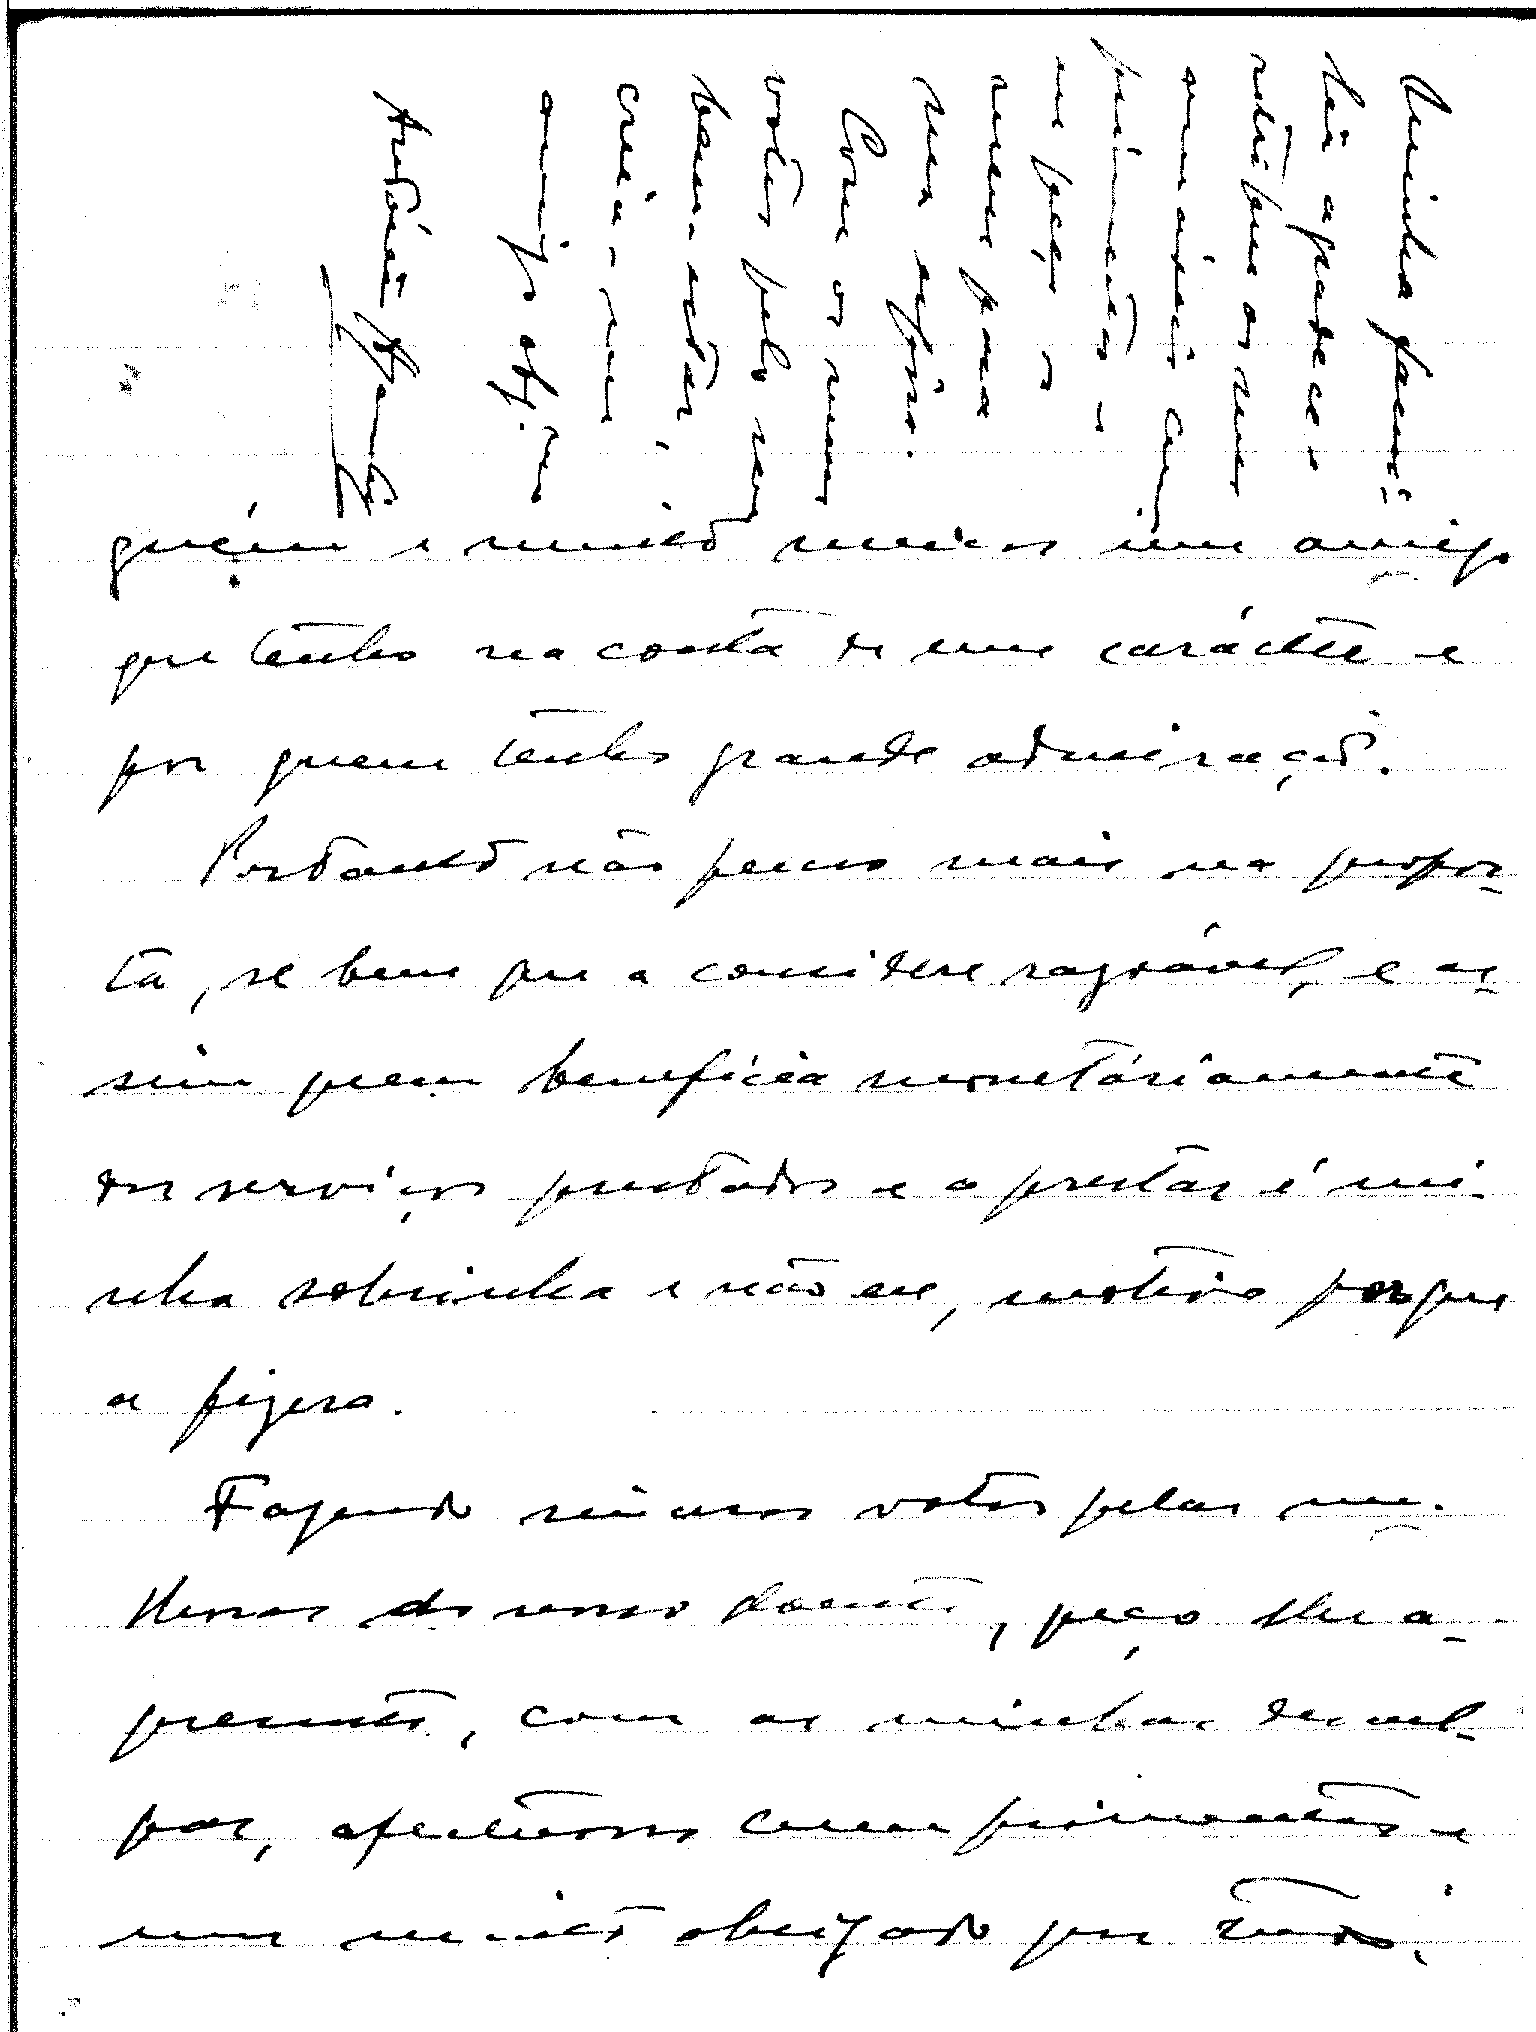 guém e muito menos um amigo
que tenho na conta de um carácter e
por quem tenho grande admiração.
Portanto não penso mais na propos-
ta, se bem que a considere razoável, e as-
sim quem beneficia monetáriamente
dos serviços prestados e a prestar é mi-
nha sobrinha e não eu, motivo porque
a fizera.
Fazendo sinceros votos pelas me-
lhoras do nosso doente, peço lhe a-
presente, com as minhas descul-
pas, afectuosos cumprimentos e
um muito obrigado por tudo.
Minha família
agradece e
retribue os seus
amáveis cum
primentos e
eu peço os
meus para
sua esposa.
Com os meus
votos pelo seu
bem-estar,
creia-me
amigo obg.
António